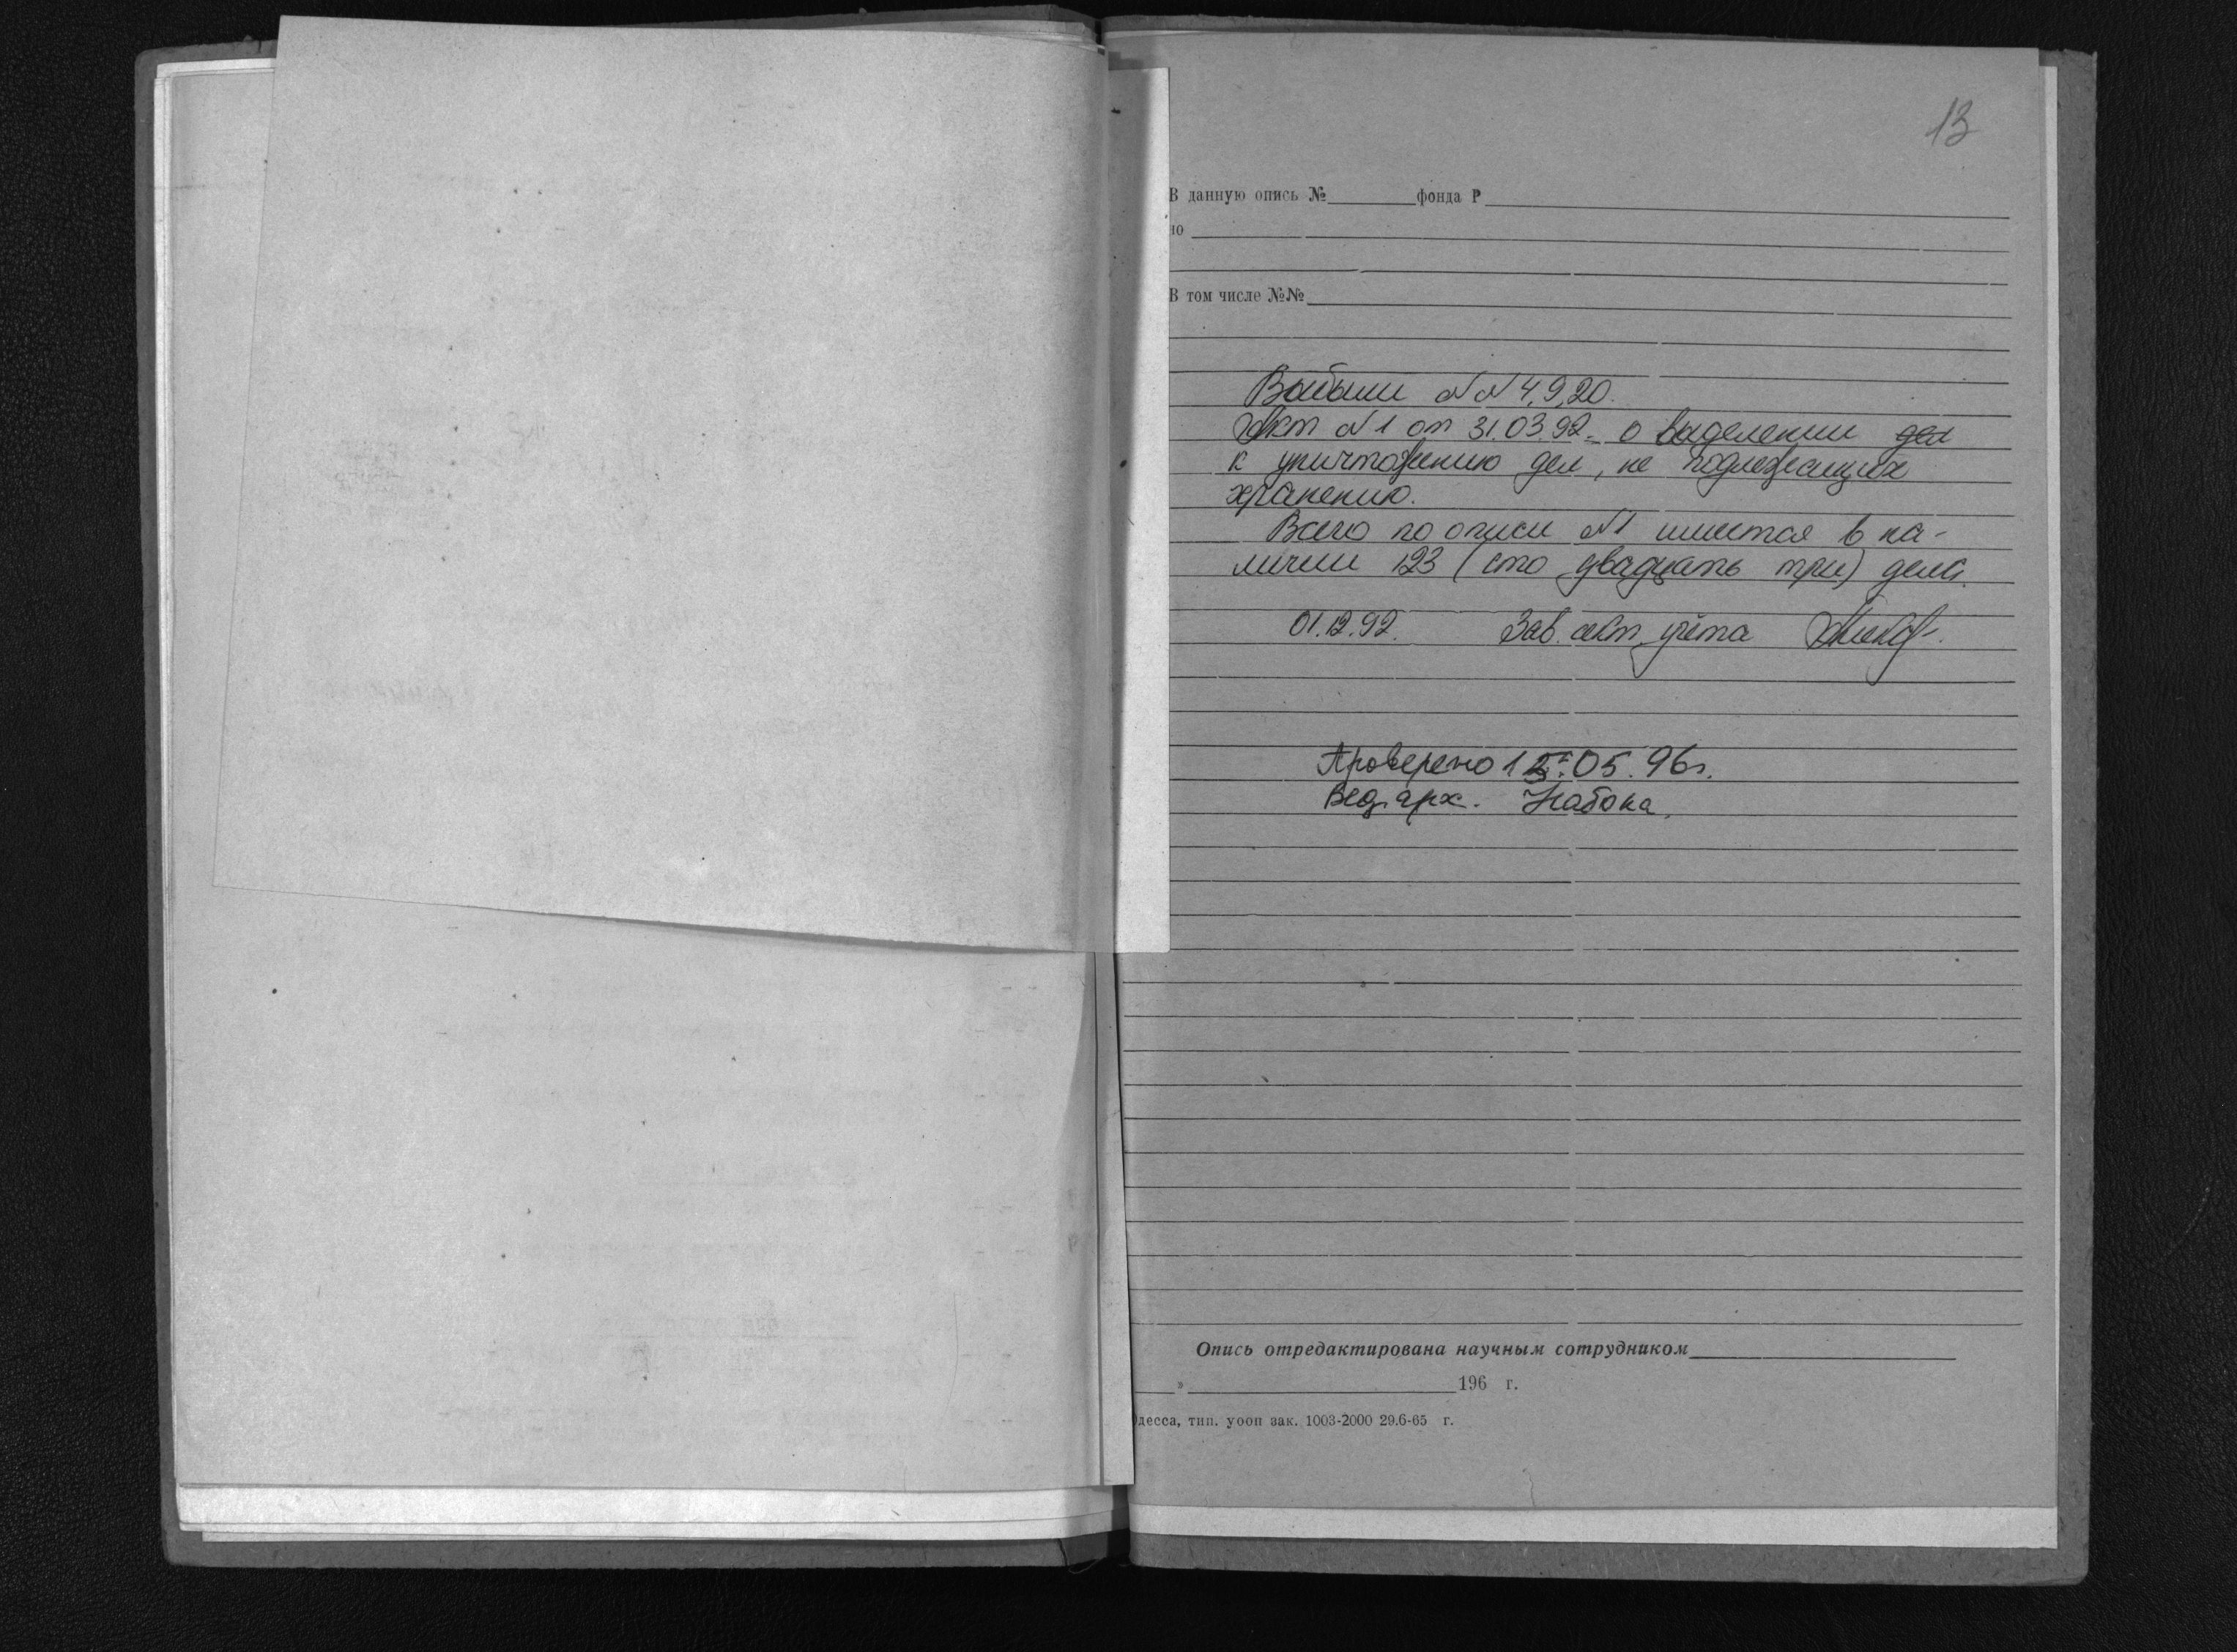 13
В данную опись № фонда Р
но
В том числе №№
Выбыли №№ 4, 9, 20.
Акт №1 от 31.03.92г. о выделении дел
к уничтожению дел, не подлежащих
хранению.
Всего по описи №1 имеется в на-
личии 123 (сто двадцать три) дела.
01.12.92. Зав. сект. учёта
Проверено 15.05.96г.
Вед. арх. Набока.
Опись отредактирована научным сотрудником
» 196 г.
десса, тип. уооп зак. 1003-2000 29.6-65 г.